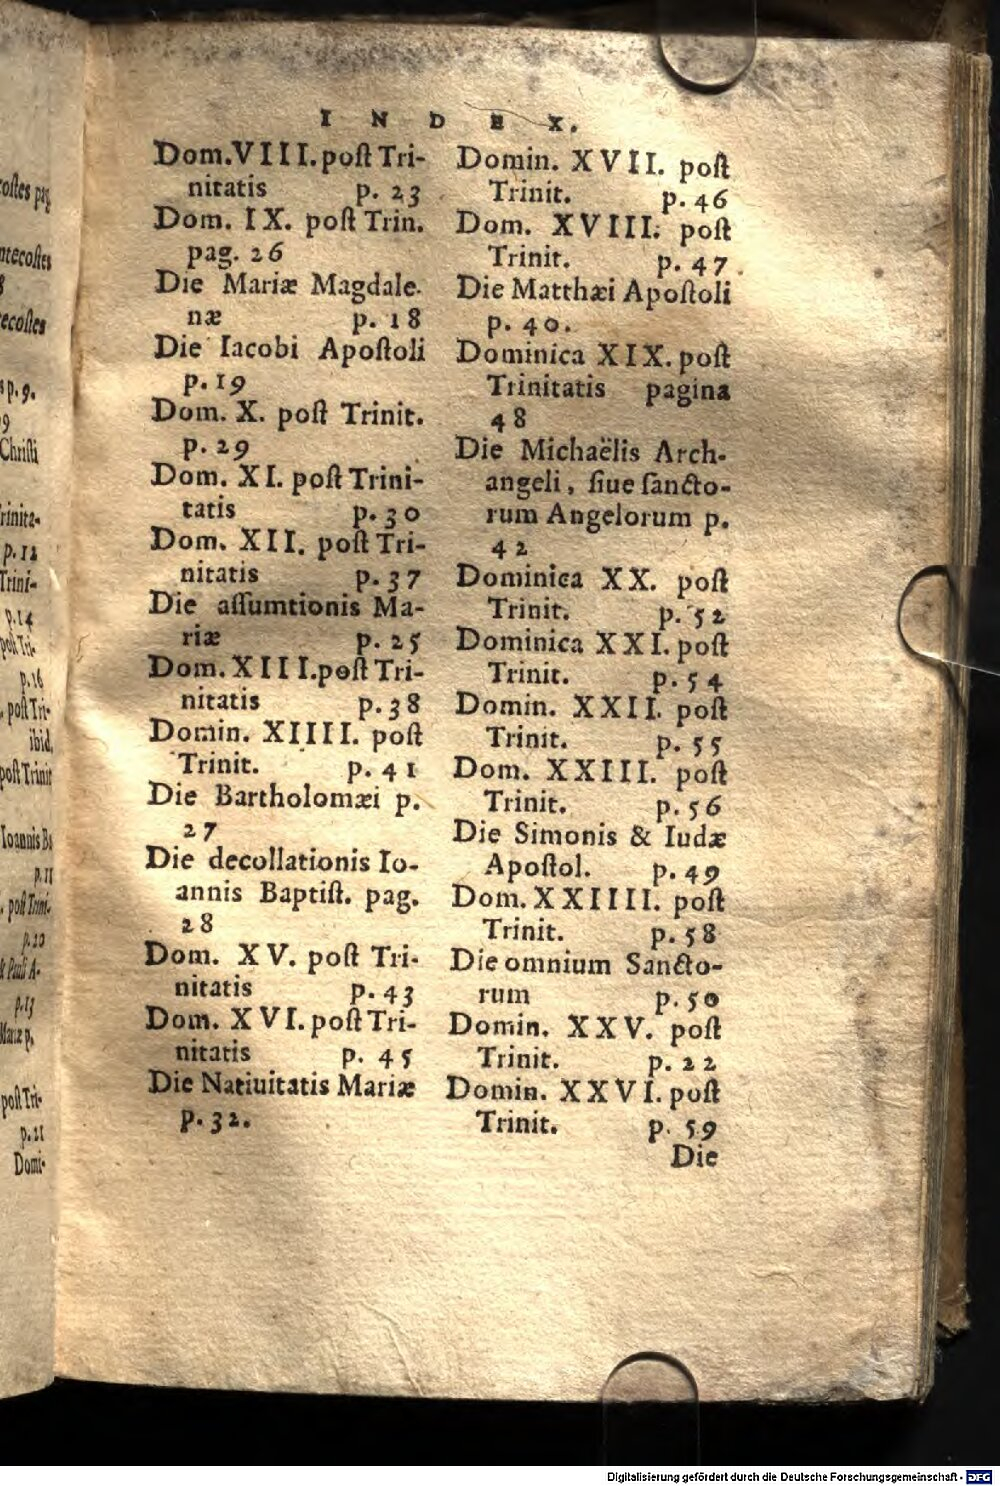 INDEX.
Dom.VIII.poſt Tri-
nitatis p. 23
Dom. IX. poſt Trin.
pag. 26
Die Mariæ Magdale-
næ p. 18
Die Iacobi Apoſtoli
p. 19
Dom. X. poſt Trinit.
p. 29
Dom. XI. poſt Trini-
tatis p. 30
Dom. XII. poſt Tri-
nitatis p. 37
Die aſſumtionis Ma-
riæ p. 25
Dom. XIII.poſt Tri-
nitatis p. 38
Domin. XIIII. poſt
Trinit. p. 41
Die Bartholomæi p.
27
Die decollationis Io-
annis Baptiſt. pag.
28
Dom. XV. poſt Tri-
nitatis p. 43
Dom. XVI. poſt Tri-
nitatis p. 45
Die Natiuitatis Mariæ
p. 32.
Domin. XVII. poſt
Trinit. p. 46
Dom. XVIII. poſt
Trinit. p. 47
Die Matthæi Apoſtoli
p. 40.
Dominica XIX. poſt
Trinitatis pagina
48
Die Michaëlis Arch-
angeli, ſiue ſancto-
rum Angelorum p.
42
Dominica XX. poſt
Trinit. p. 52
Dominica XXI. poſt
Trinit. p. 54
Domin. XXII. poſt
Trinit. p. 55
Dom. XXIII. poſt
Trinit. p. 56
Die Simonis & Iudæ
Apoſtol. p. 49
Dom. XXIIII. poſt
Trinit. p. 58
Die omnium Sancto-
rum p. 50
Domin. XXV. poſt
Trinit. p. 22
Domin. XXVI. poſt
Trinit. p. 59
Die
Digitalisierung gefördert durch die Deutsche Forschungsgemeinschaft - DFG